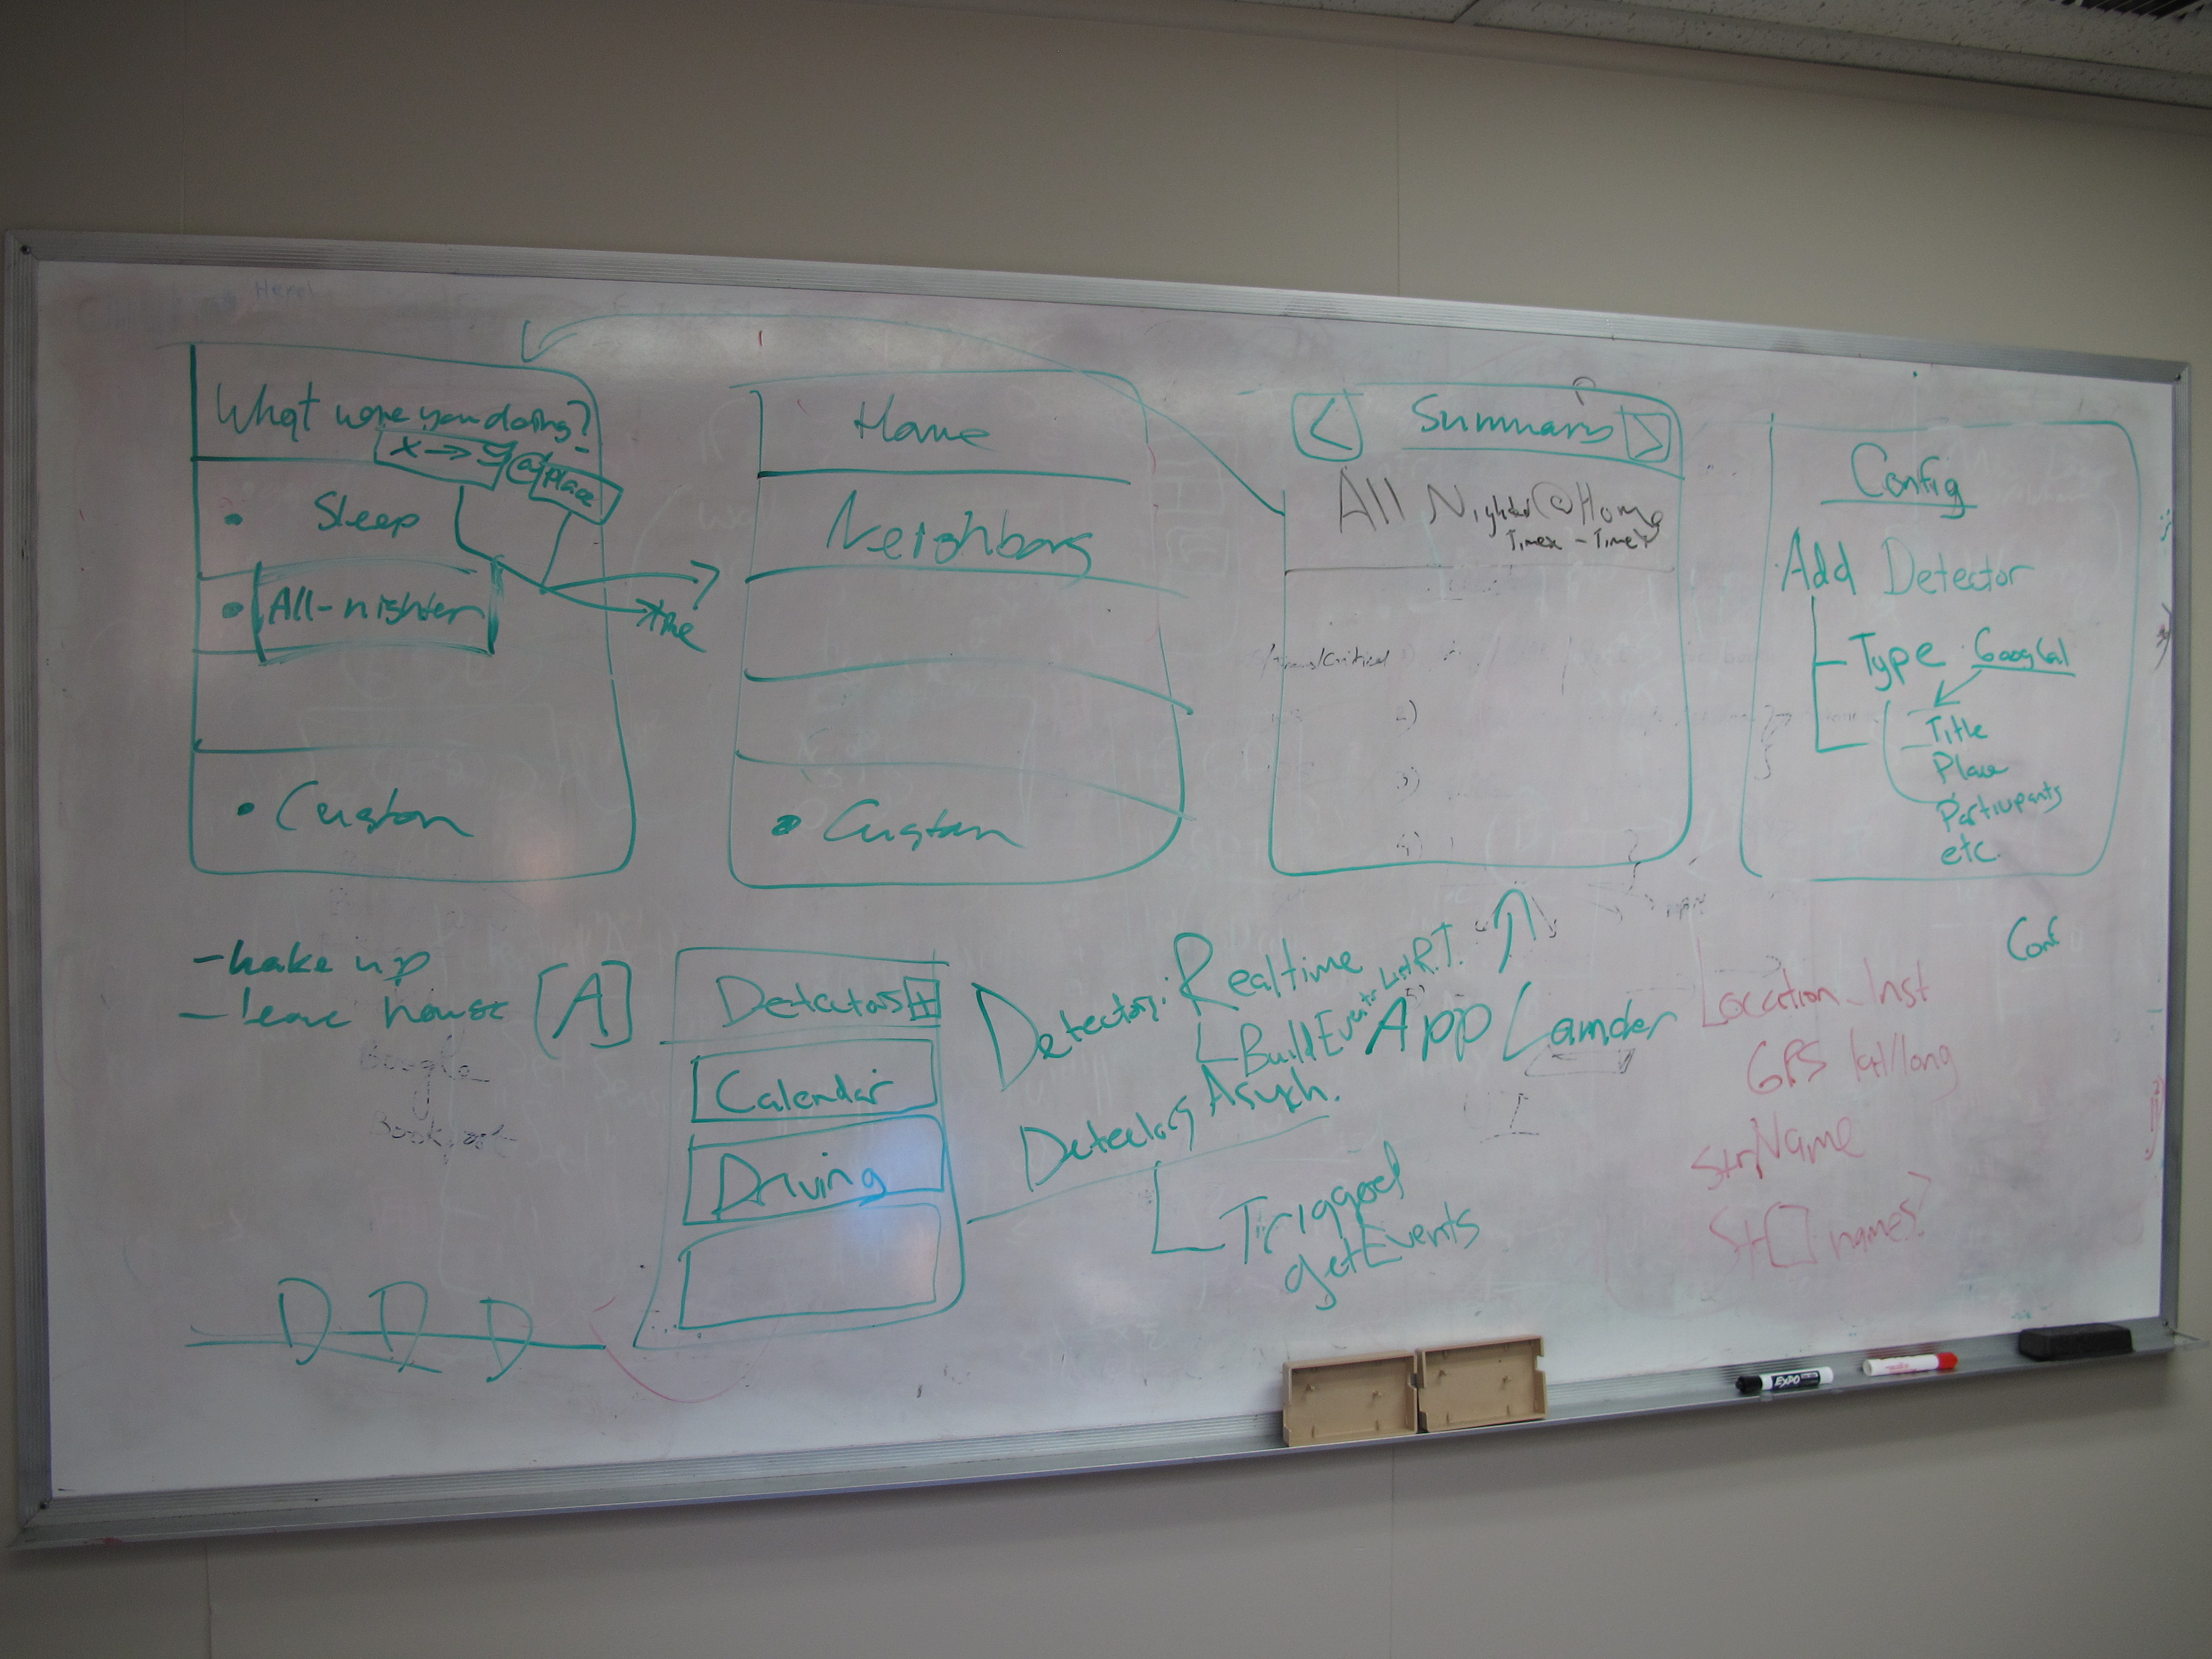 What were you doing?
x → y @ place
• Sleep
• All-nighter
• Custom
Home
Neighbors
• Custom
< Summary >
All Nighter @ Home
Timex - Timey
Config
Add Detector
Type GoogCal
Title
Place
Participants
etc.
- wake up
- leave house
[A]
Detectors +
Calendar
Driving
Detectors: Realtime
Build Events
R.T.
App
Detectors Asynch.
Triggered
getEvents
Location_Inst
GPS lat/long
Str Name
Str[] names?
Conf
D D D
Google
2)
3)
4)
UI
EXPO